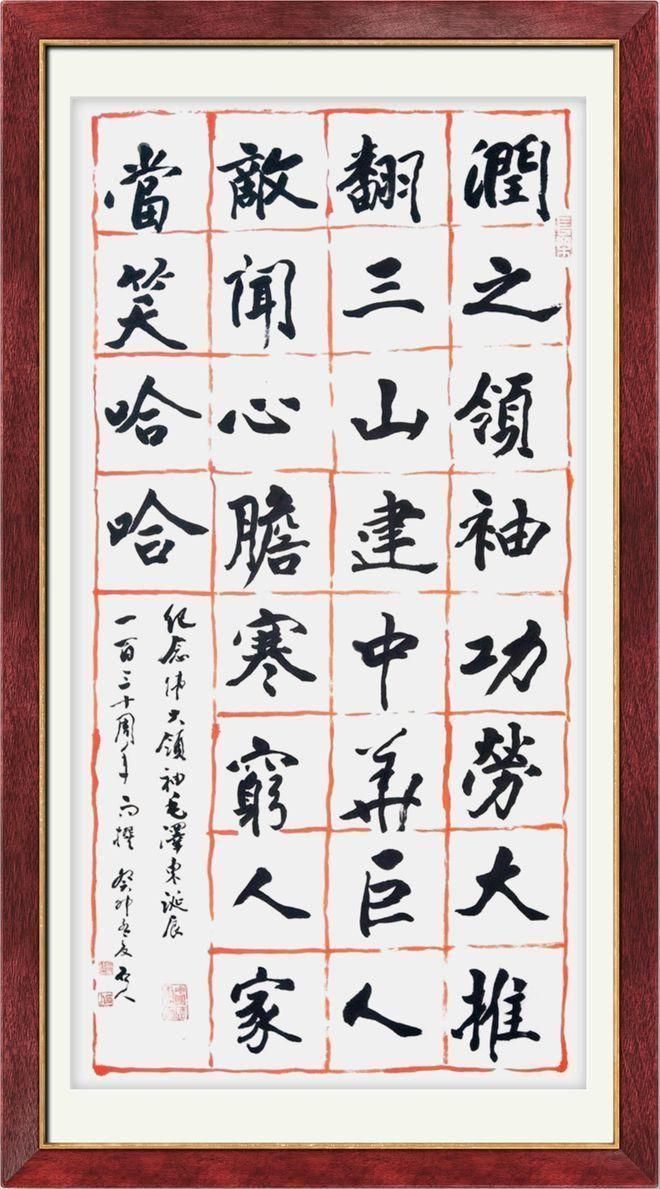 潤之領袖功勞大推
翻三山建中華巨人
敵闻心膽寒窮人家
當笑哈哈
纪念伟大領袖毛澤東诞辰
一百三十周年而撰 癸卯